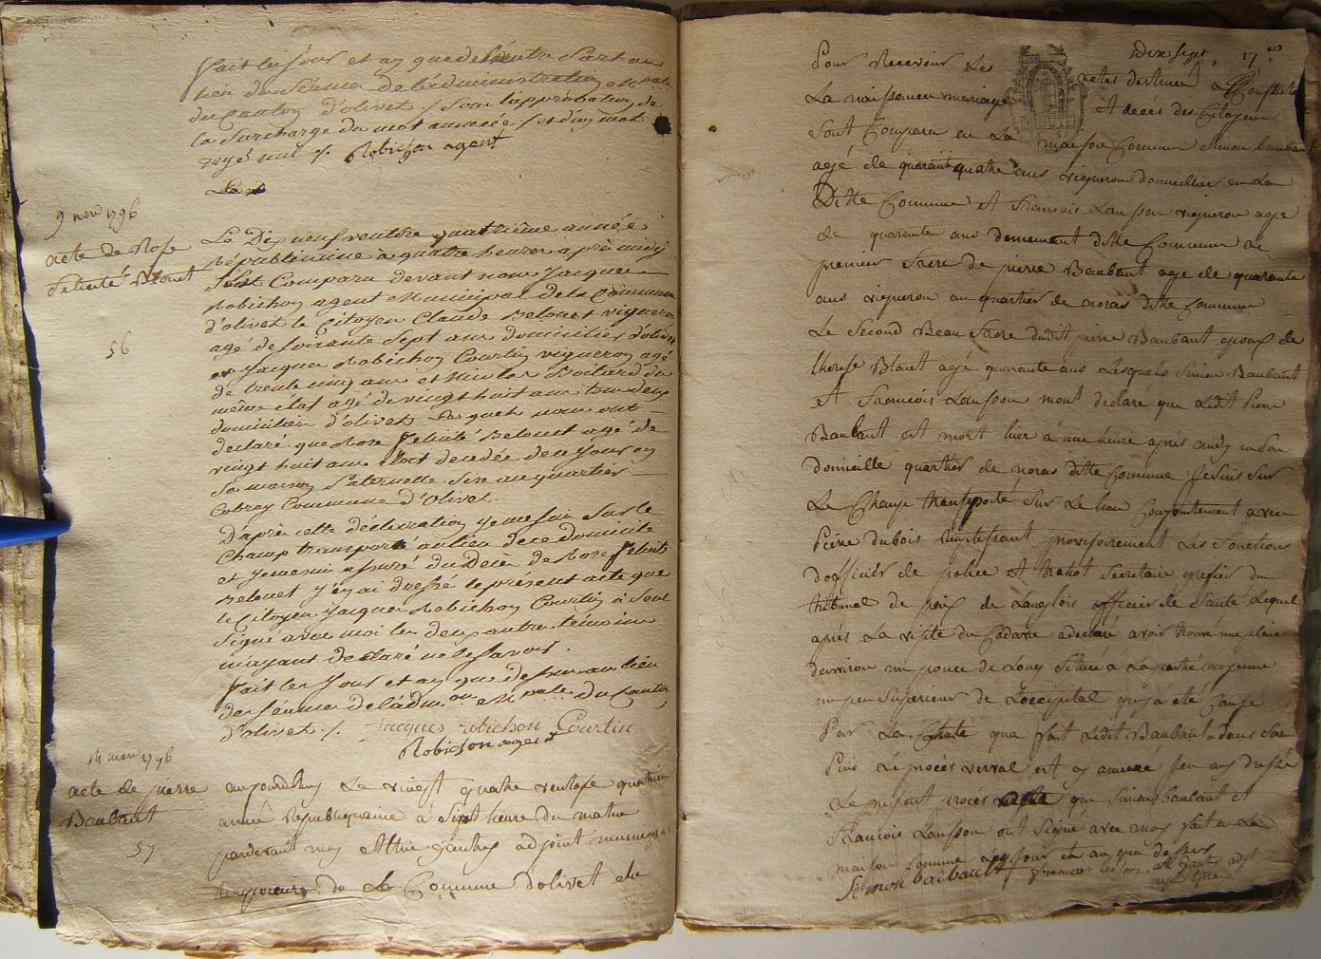 fait les jour et an que de
lieu des séance de l'administration
du canton d'olivet / sous l'approbation de
la surcharge du mot année et d'un mot
rayé nul /. Robichon agent
Le
9 1796
acte de Rose
félicité Blouet
56
Le Dix neuf ventôse quatrième année
Républiquaine à quatre heures après midy
sont Comparu devant nous Jacques
Robichon agent municipal de la Commune
d'olivet le Citoyen Claude Belouet vigneron
agé de soixante sept ans domicilié d'olivet
et Jacques Robichon Courtin vigneron agé
de trente cinq ans et Nicolas du
même état agé de vingt huit ans tous deux
domicilier d'olivet Lesquels nous ont
déclaré que Rose félicité Belouet agé de
vingt huit ans est décédée de ce jour en
sa maison Paternelle sise au quartier
Cobray Commune d'Olivet.
D'après cette déclaration je me suis sur le
Champ transporté au lieu de ce domicile
et je me suis assuré du Décès de Rose félicité
Belouet j'en ai dressé le présent acte que
le Citoyen Jacques Robichon Courtin à seul
signé avec moi les deux autre témoins
m'ayant déclaré ne le savoir.
fait les Jour et an que dessus au lieu
des séance de l'admon mpale du Canton
d'olivet /. Jacques robichon Courtin
Robichon agent
14 1796
acte de pierre
Baubaut
57
aujourdhuy Le vingt quatre ventose quatrieme
année Republiquaine à sept heure du matin
pardevant moy adjoint municipal
de la Commune dolivet elu
dix sept 17
Pour Recevoir Les actes destinés
La naissance mariage et decès des Citoyens
sont Comparu en La maison Commune Simon Baubaut
agé de quarante quatre ans vigneron domicilier en La
Ditte Commune et francois Lansson vigneron age
de quarante ans demeurant ditte Commune Le
premier frere de pierre Baubaut age de quarante
ans vigneron au quartier de noras ditte Commune
Le Second Beau frere dudit pierre Baubaut epoux de
therese Blouet agé quarante ans Lesquels Simon Baubaut
et francois Lansson mont declaré que Ledit Pierre
Baubaut est mort hier à une heure après midy en son
domicille quartier de noras ditte Commune Je suis sur
Le Champ transporté sur Le lieu Conjointement avec
Pierre dubois provisoirement Les fonctions
dofficier de police et secretaire grefier du
tribunal de paix de Langlois officier de santé Lequel
après La visite du Cadavre a declaré avoir trouvé une plaie
denviron un pouce de Long Située à La partie moyenne
un peu Superieur de Loccipital qui a eté Causée
Par La Chute que fait Ledit Baubaut dans son
Puis Le procès verval est y annexé Jen ay dressé
Le present procès que Simon Baubaut et
francois Lansson ont Signé avec moy fait en La
maison Commune Les jour et an que dessus
Simon baubault